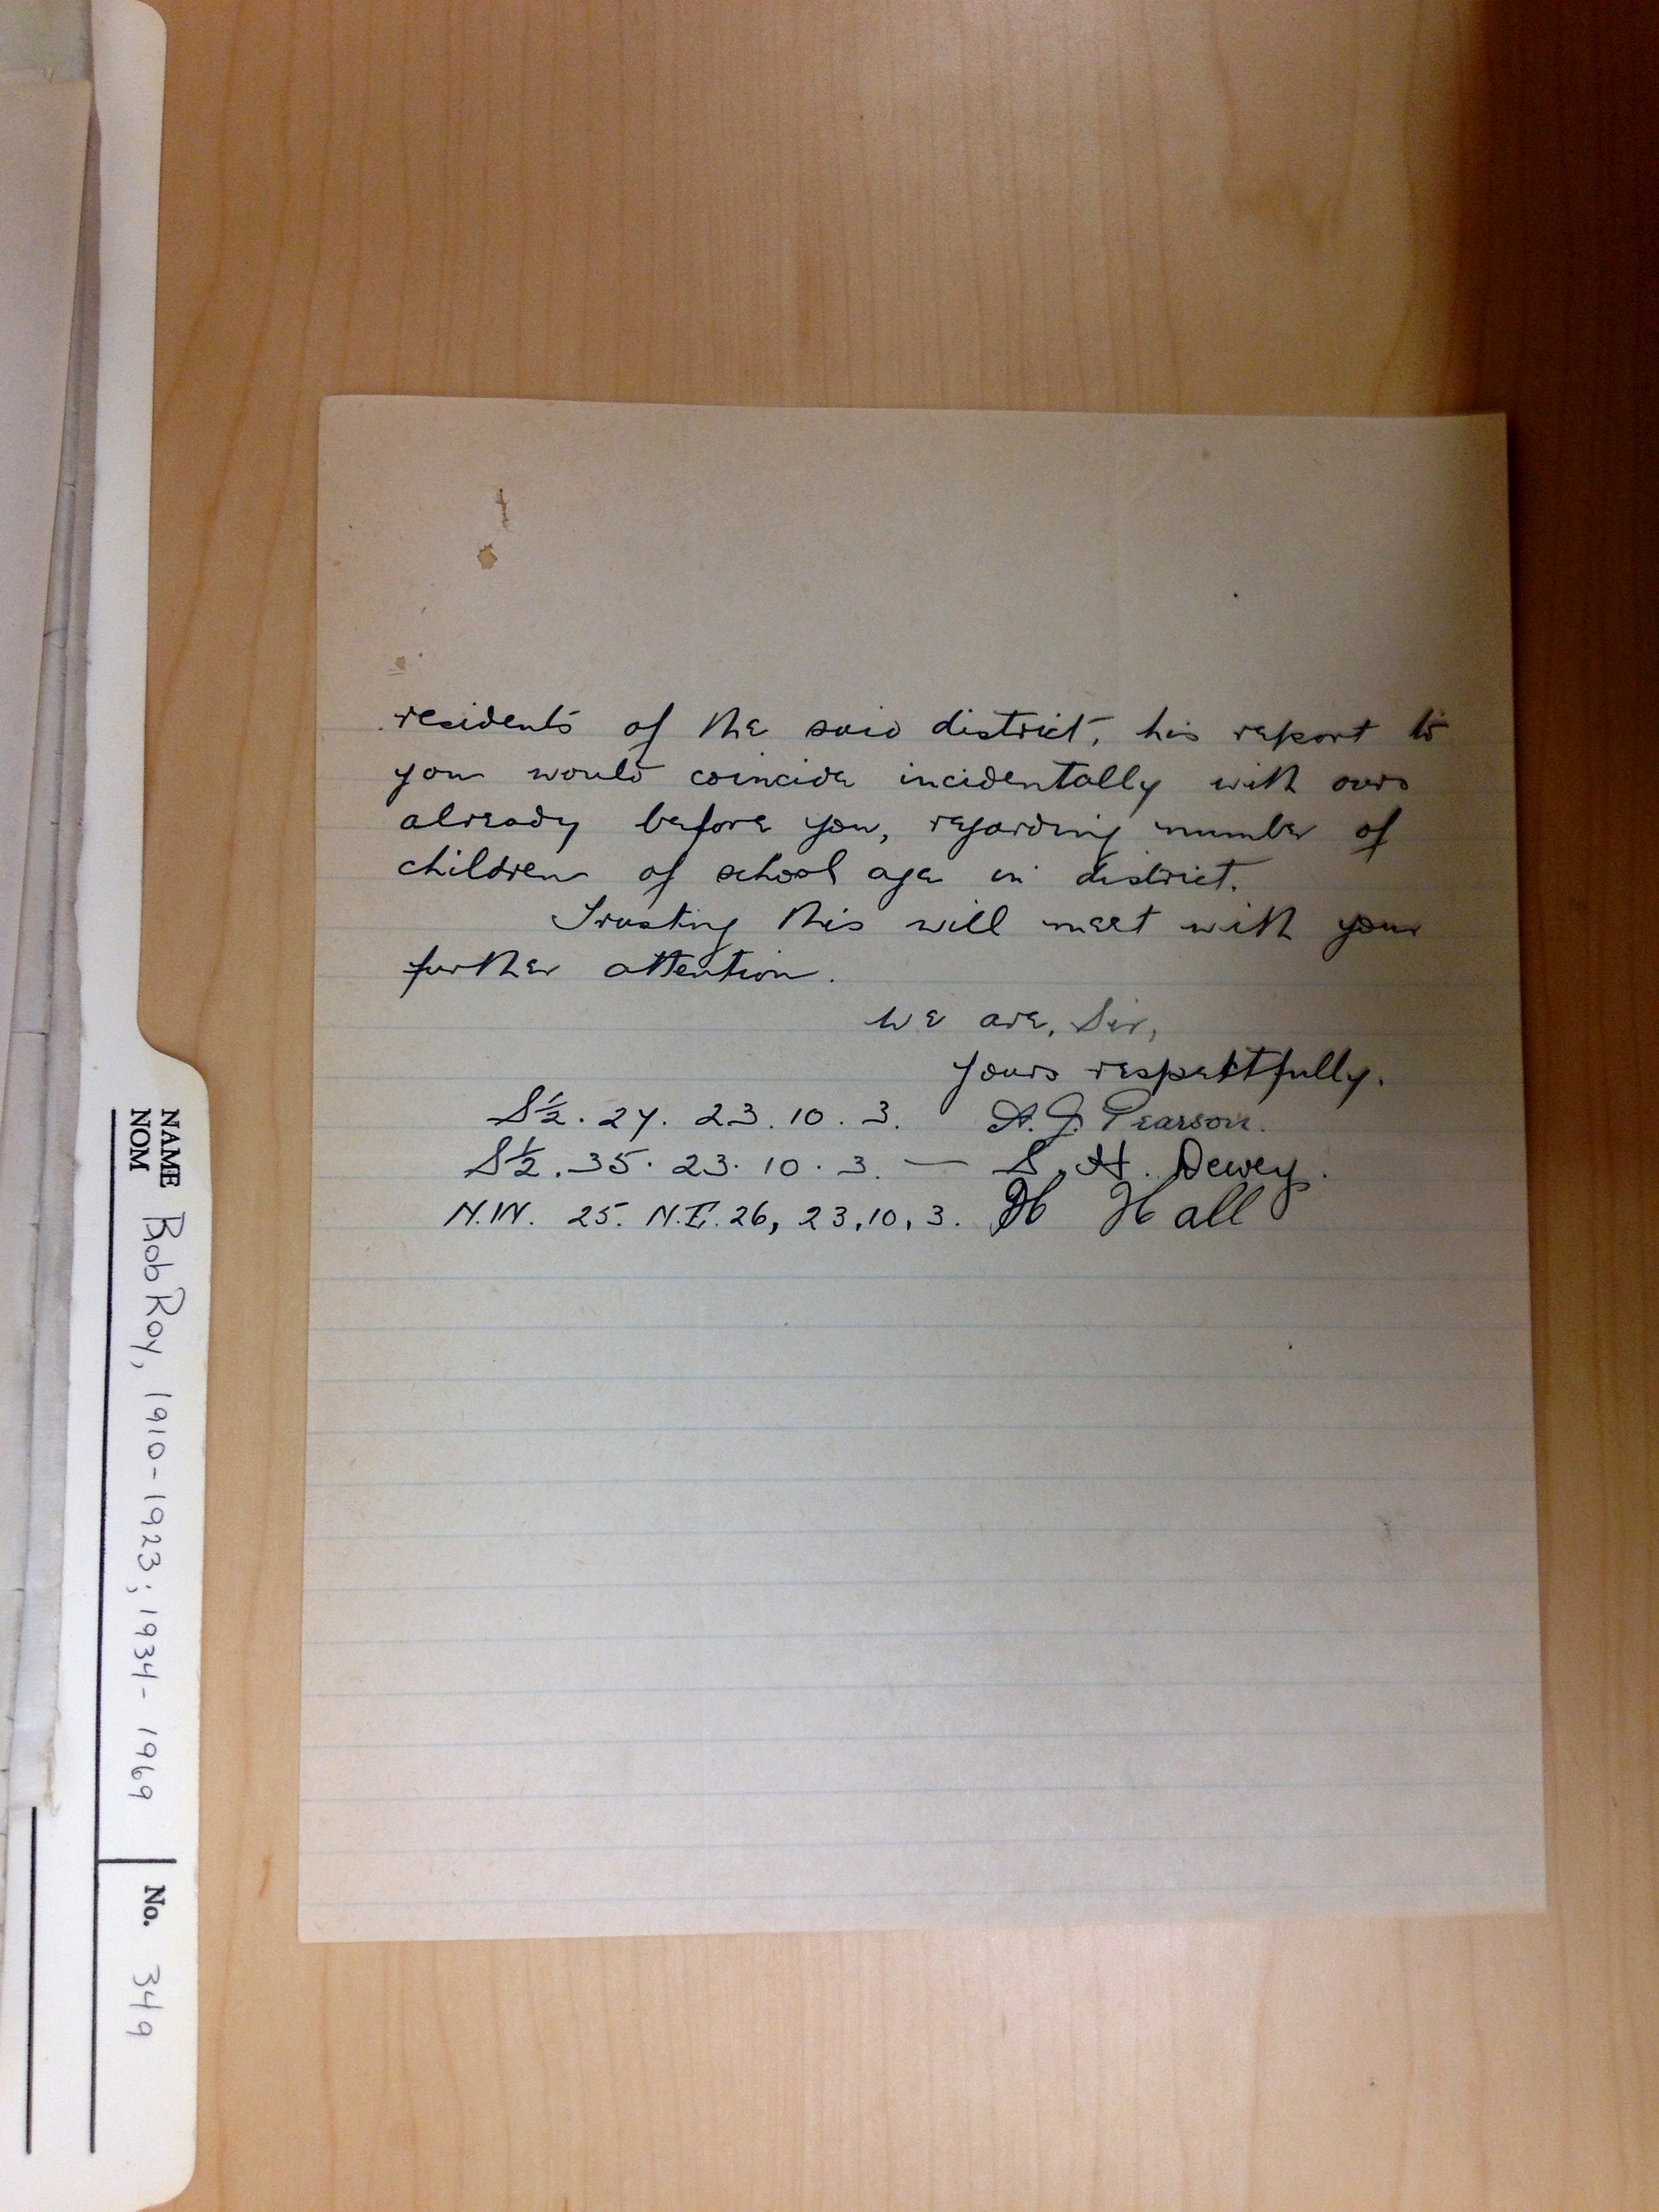 residents of the said district, his report to
you would coincide incidentally with ours
already before you, regarding number of
children of school age in district.
Trusting this will meet with your
further attention.
We are, Sir,
Yours respectfully.
S½. 27. 23. 10. 3. A. J. Pearson.
S½. 35. 23. 10. 3. — S. H. Dewey.
N.W. 25. N.E. 26, 23, 10, 3. H Hall
NAME Bob Roy, 1910-1923; 1934-1969 No. 349
NOM